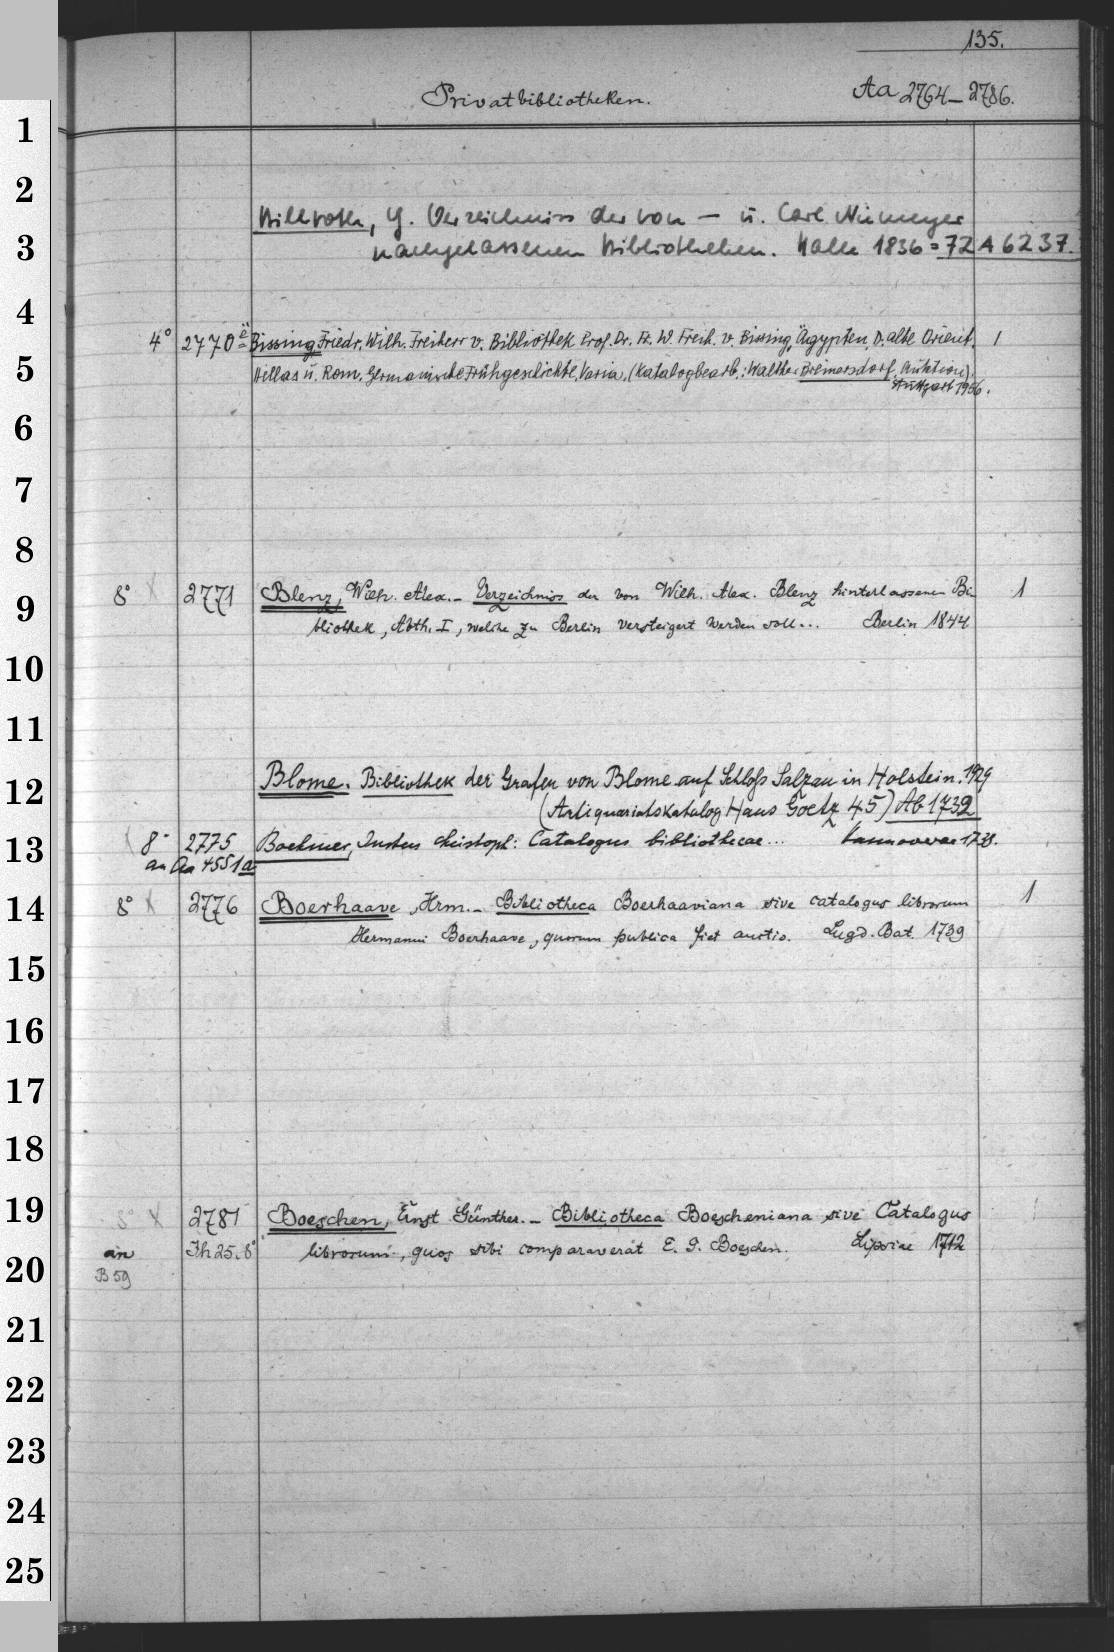 135.
Privatbibliotheken. Aa 2764–2786.
1
2
Billroth, G. Verzeichniss der von – u. Carl Niemeyer
3
nachgelassenen Bibliotheken. Halle 1836 = 72 A 6237.
4
4° 2770 Bissing Friedr. Wilh. Freiherr v. Bibliothek Prof. Dr. Fr. W. Freih. v. Bissing, Ägypten, D. alte Orient, 1
5
Hellas u. Rom, Germanische Frühgeschichte, Varia, (Katalogbearb.: Walther Breimersdorf, Auktion).
Stuttgart 1956.
6
7
8
8° X 2771 Blenz, Wilh. Alex. – Verzeichniss der von Wilh. Alex. Blenz hinterlassenen Bi- 1
9
bliothek, Abth. I, welche zu Berlin versteigert werden soll... Berlin 1844
10
11
Blome. Bibliothek der Grafen von Blome auf Schloß Salzau in Holstein. 1929
12
(Antiquariatskatalog Hans Goetz 45) Ab 1732
13
8° 2775 Boehmer, Justus Christoph: Catalogus bibliothecae... Hannoverae 1733.
an Aa 4551a
14
8° X 2776 Boerhaave, Hrm. – Bibliotheca Boerhaaviana sive catalogus librorum 1
Hermanni Boerhaave, quorum publica fiet auctio. Lugd. Bat. 1739
15
16
17
18
19
8° X 2781 Boeschen, Ernst Günther. – Bibliotheca Boescheniana sive Catalogus
an Jh 25. 8° librorum, quos sibi comparaverat E. G. Boeschen. Lipsiae 1712
20
B 59
21
22
23
24
25